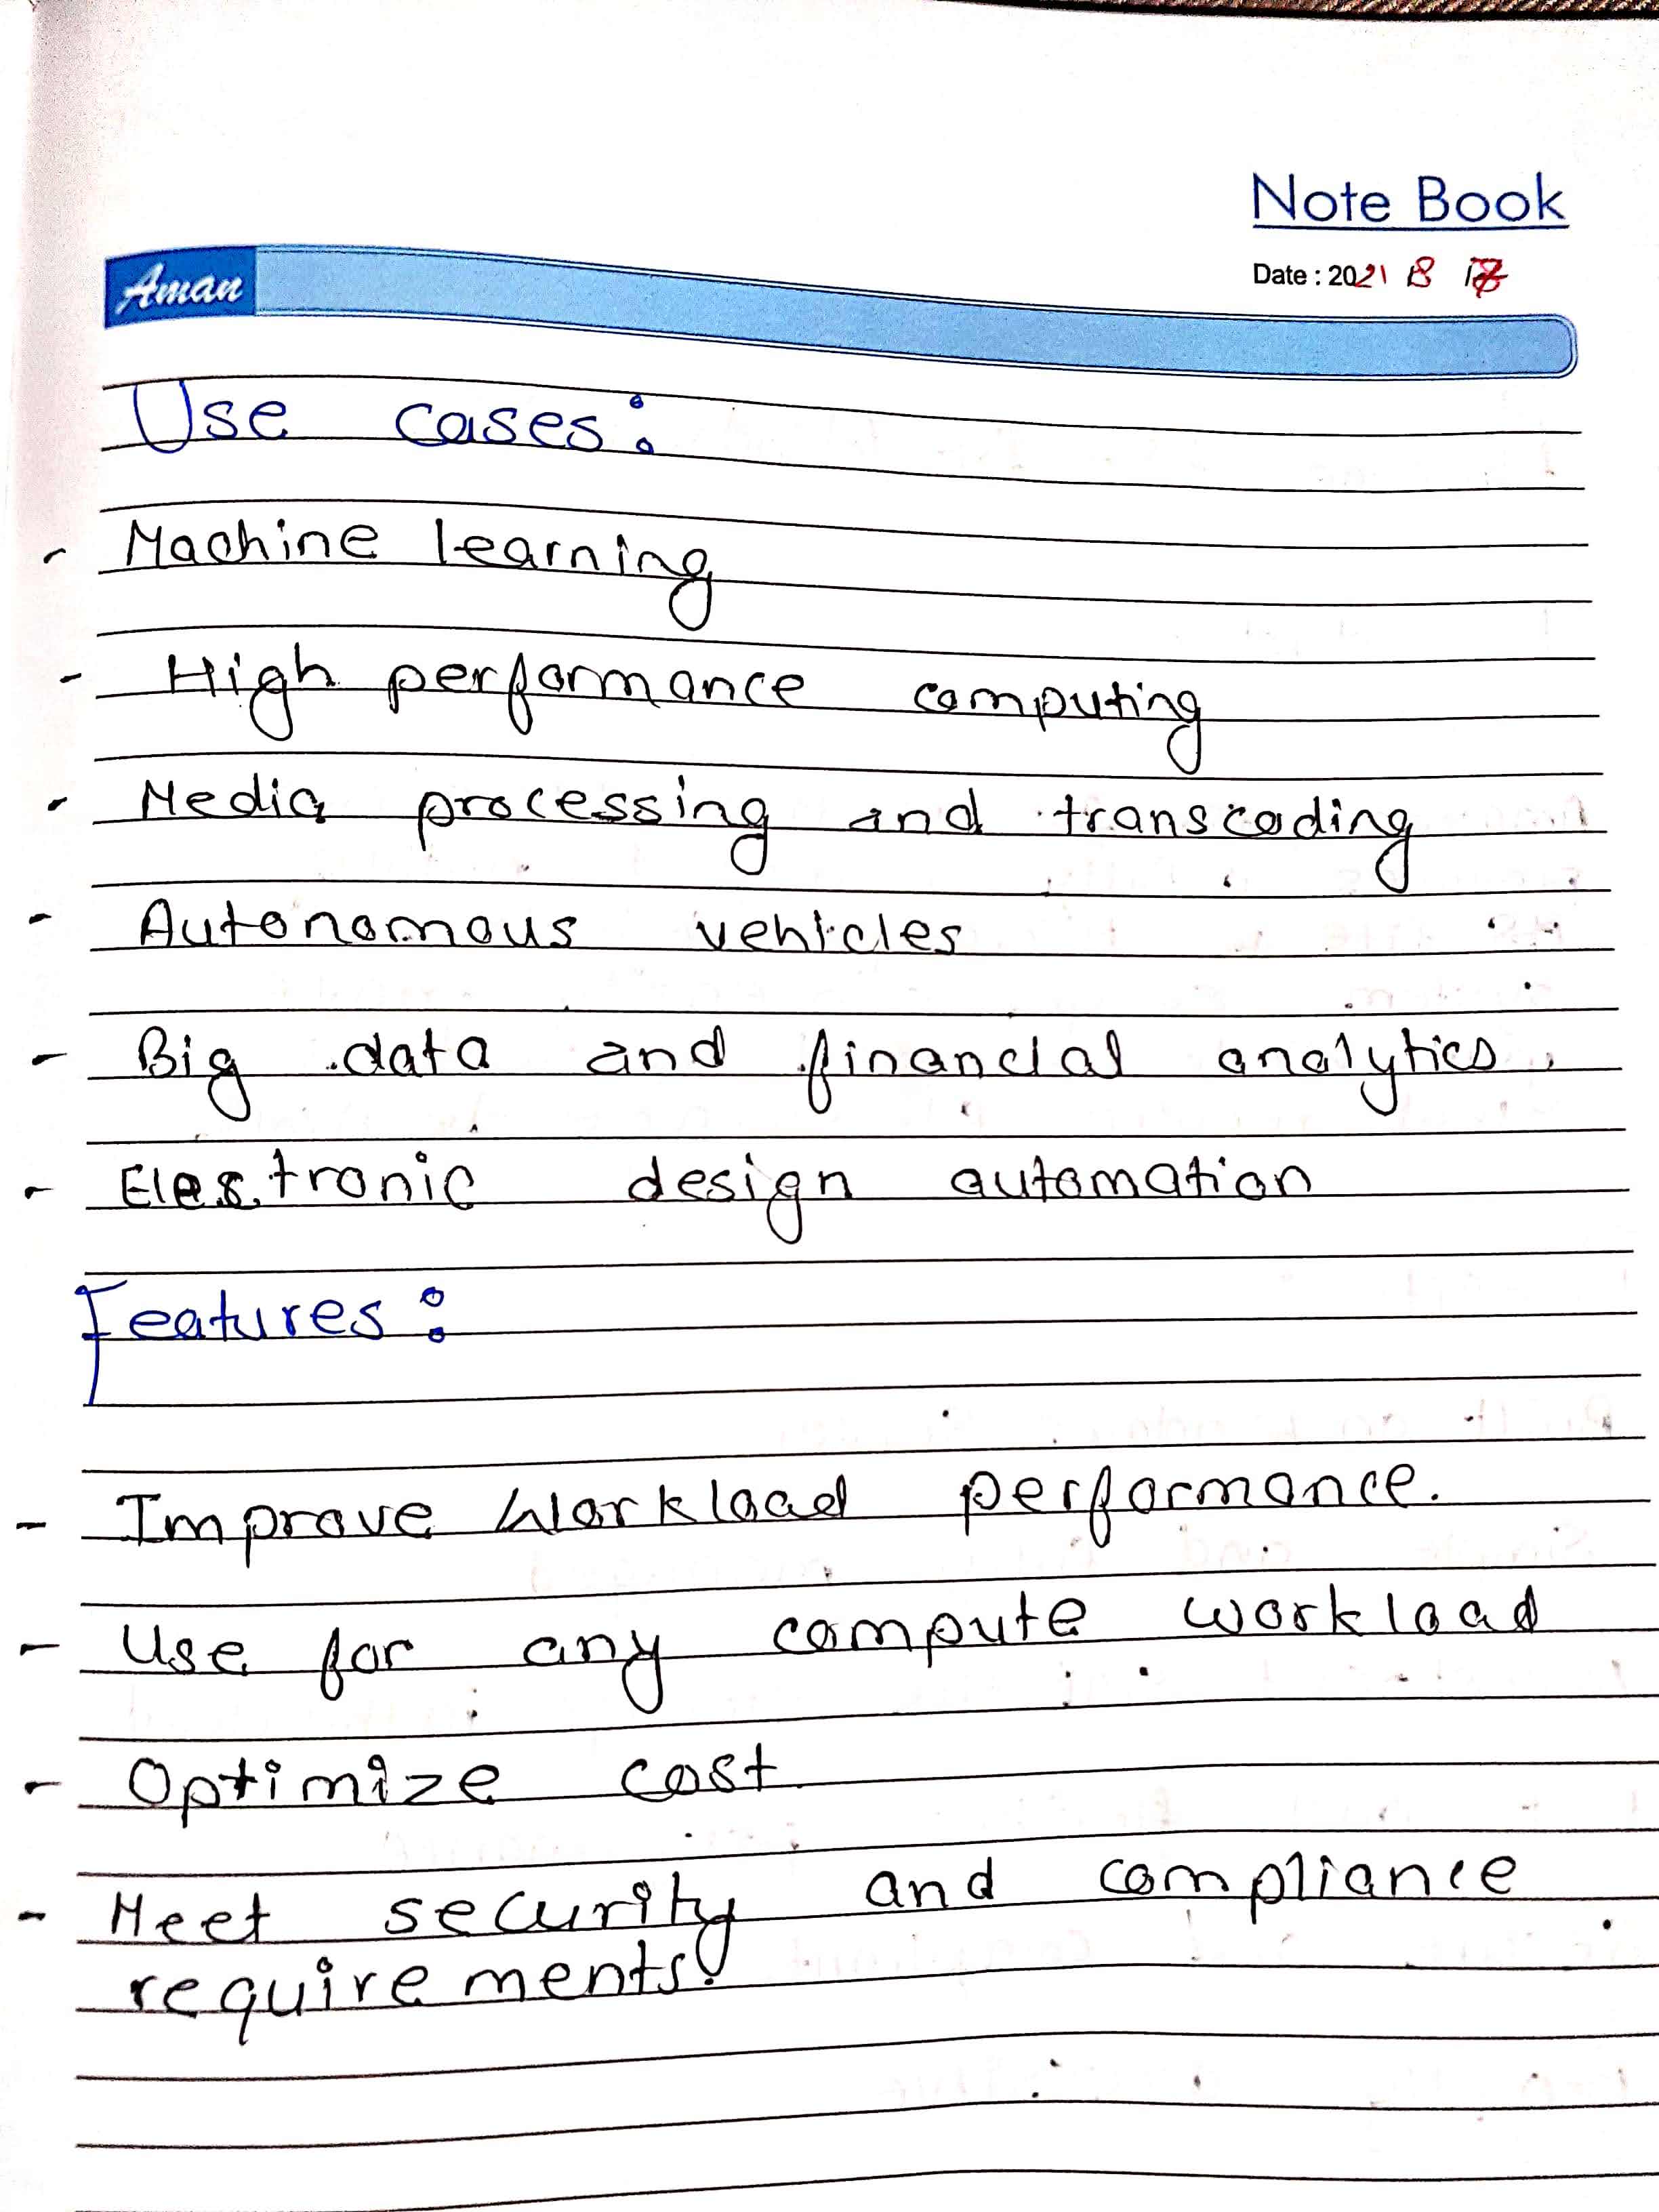 Note Book
Date : 2021 8
Aman
Use cases:
- Machine learning
- High performance computing
- Media processing and transcoding
- Autonomous vehicles
- Big data and financial analytics.
- Electronic design automation
Features:
- Improve workload performance.
- Use for any compute workload
- Optimize cost
- Meet security and compliance
requirements.